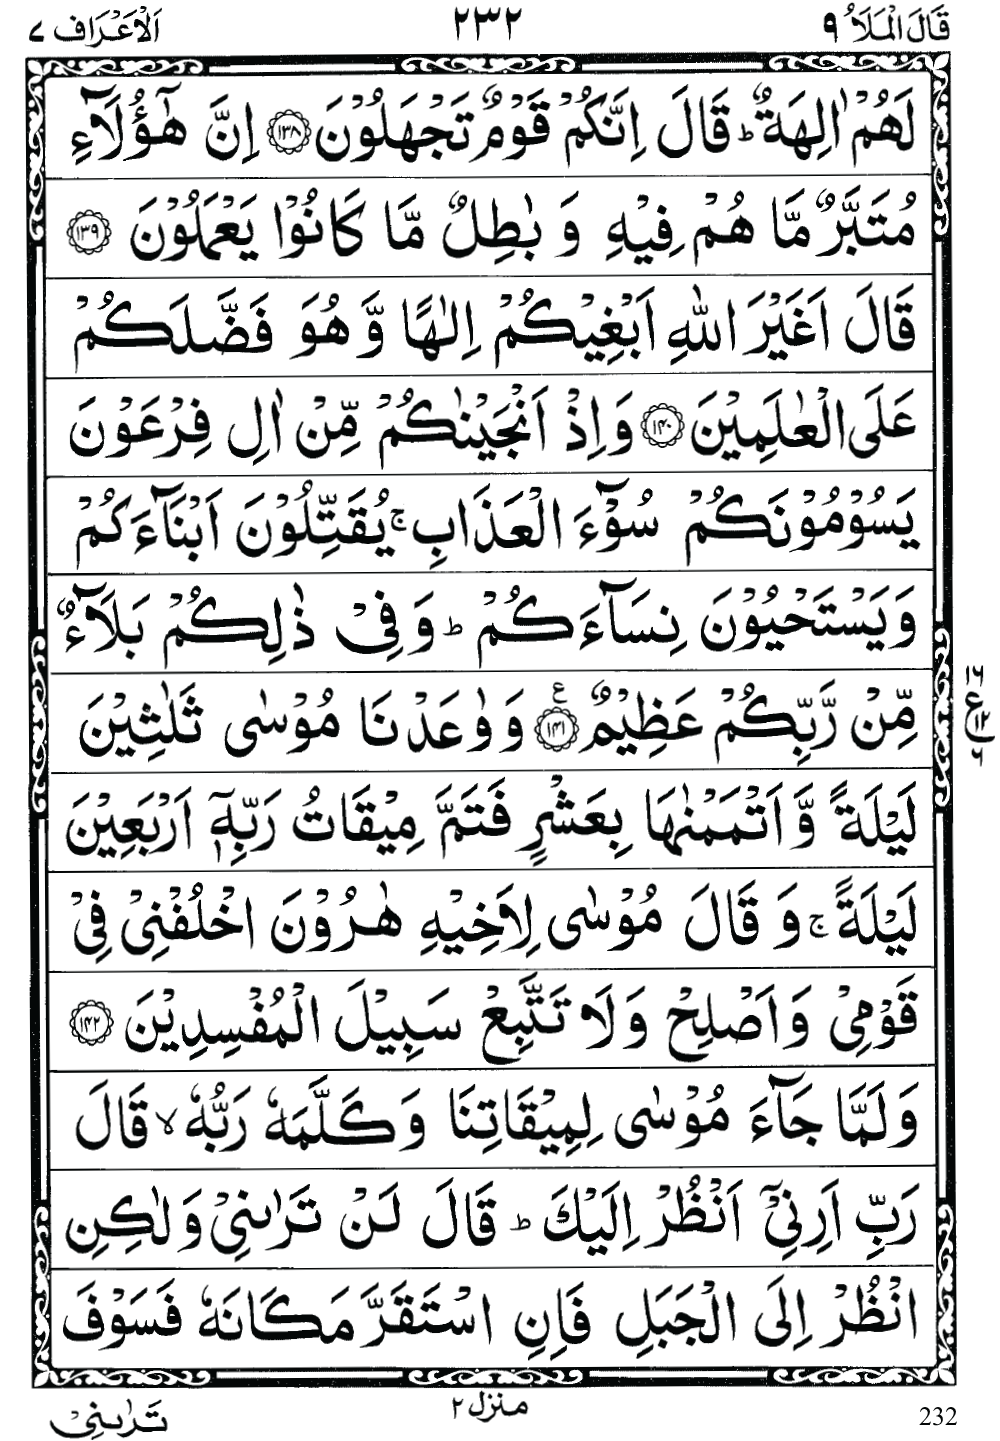 قَالَ الْمَلَاُ ٩ ٢٣٢ اَلْاَعْرَاف ٧
لَهُمْ اٰلِهَةٌ ؕ قَالَ اِنَّكُمْ قَوْمٌ تَجْهَلُوْنَ ﴿١٣٨﴾ اِنَّ هٰٓؤُلَآءِ
مُتَبَّرٌ مَّا هُمْ فِيْهِ وَ بٰطِلٌ مَّا كَانُوْا يَعْمَلُوْنَ ﴿١٣٩﴾
قَالَ اَغَيْرَ اللّٰهِ اَبْغِيْكُمْ اِلٰهًا وَّ هُوَ فَضَّلَكُمْ
عَلَى الْعٰلَمِيْنَ ﴿١٤٠﴾ وَاِذْ اَنْجَيْنٰكُمْ مِّنْ اٰلِ فِرْعَوْنَ
يَسُوْمُوْنَكُمْ سُوْٓءَ الْعَذَابِ ۚ يُقَتِّلُوْنَ اَبْنَآءَكُمْ
وَيَسْتَحْيُوْنَ نِسَآءَكُمْ ؕ وَفِيْ ذٰلِكُمْ بَلَآءٌ
مِّنْ رَّبِّكُمْ عَظِيْمٌ ﴿١٤١﴾ ع وَوٰعَدْنَا مُوْسٰى ثَلٰثِيْنَ
١٦ ع ١٢ ٦
لَيْلَةً وَّاَتْمَمْنٰهَا بِعَشْرٍ فَتَمَّ مِيْقَاتُ رَبِّهٖٓ اَرْبَعِيْنَ
لَيْلَةً ۚ وَ قَالَ مُوْسٰى لِاَخِيْهِ هٰرُوْنَ اخْلُفْنِيْ فِيْ
قَوْمِيْ وَاَصْلِحْ وَلَا تَتَّبِعْ سَبِيْلَ الْمُفْسِدِيْنَ ﴿١٤٢﴾
وَلَمَّا جَآءَ مُوْسٰى لِمِيْقَاتِنَا وَكَلَّمَهٗ رَبُّهٗ ۙ قَالَ
رَبِّ اَرِنِيْٓ اَنْظُرْ اِلَيْكَ ؕ قَالَ لَنْ تَرٰىنِيْ وَلٰكِنِ
انْظُرْ اِلَى الْجَبَلِ فَاِنِ اسْتَقَرَّ مَكَانَهٗ فَسَوْفَ
تَرٰىنِيْ منزل ٢ 232